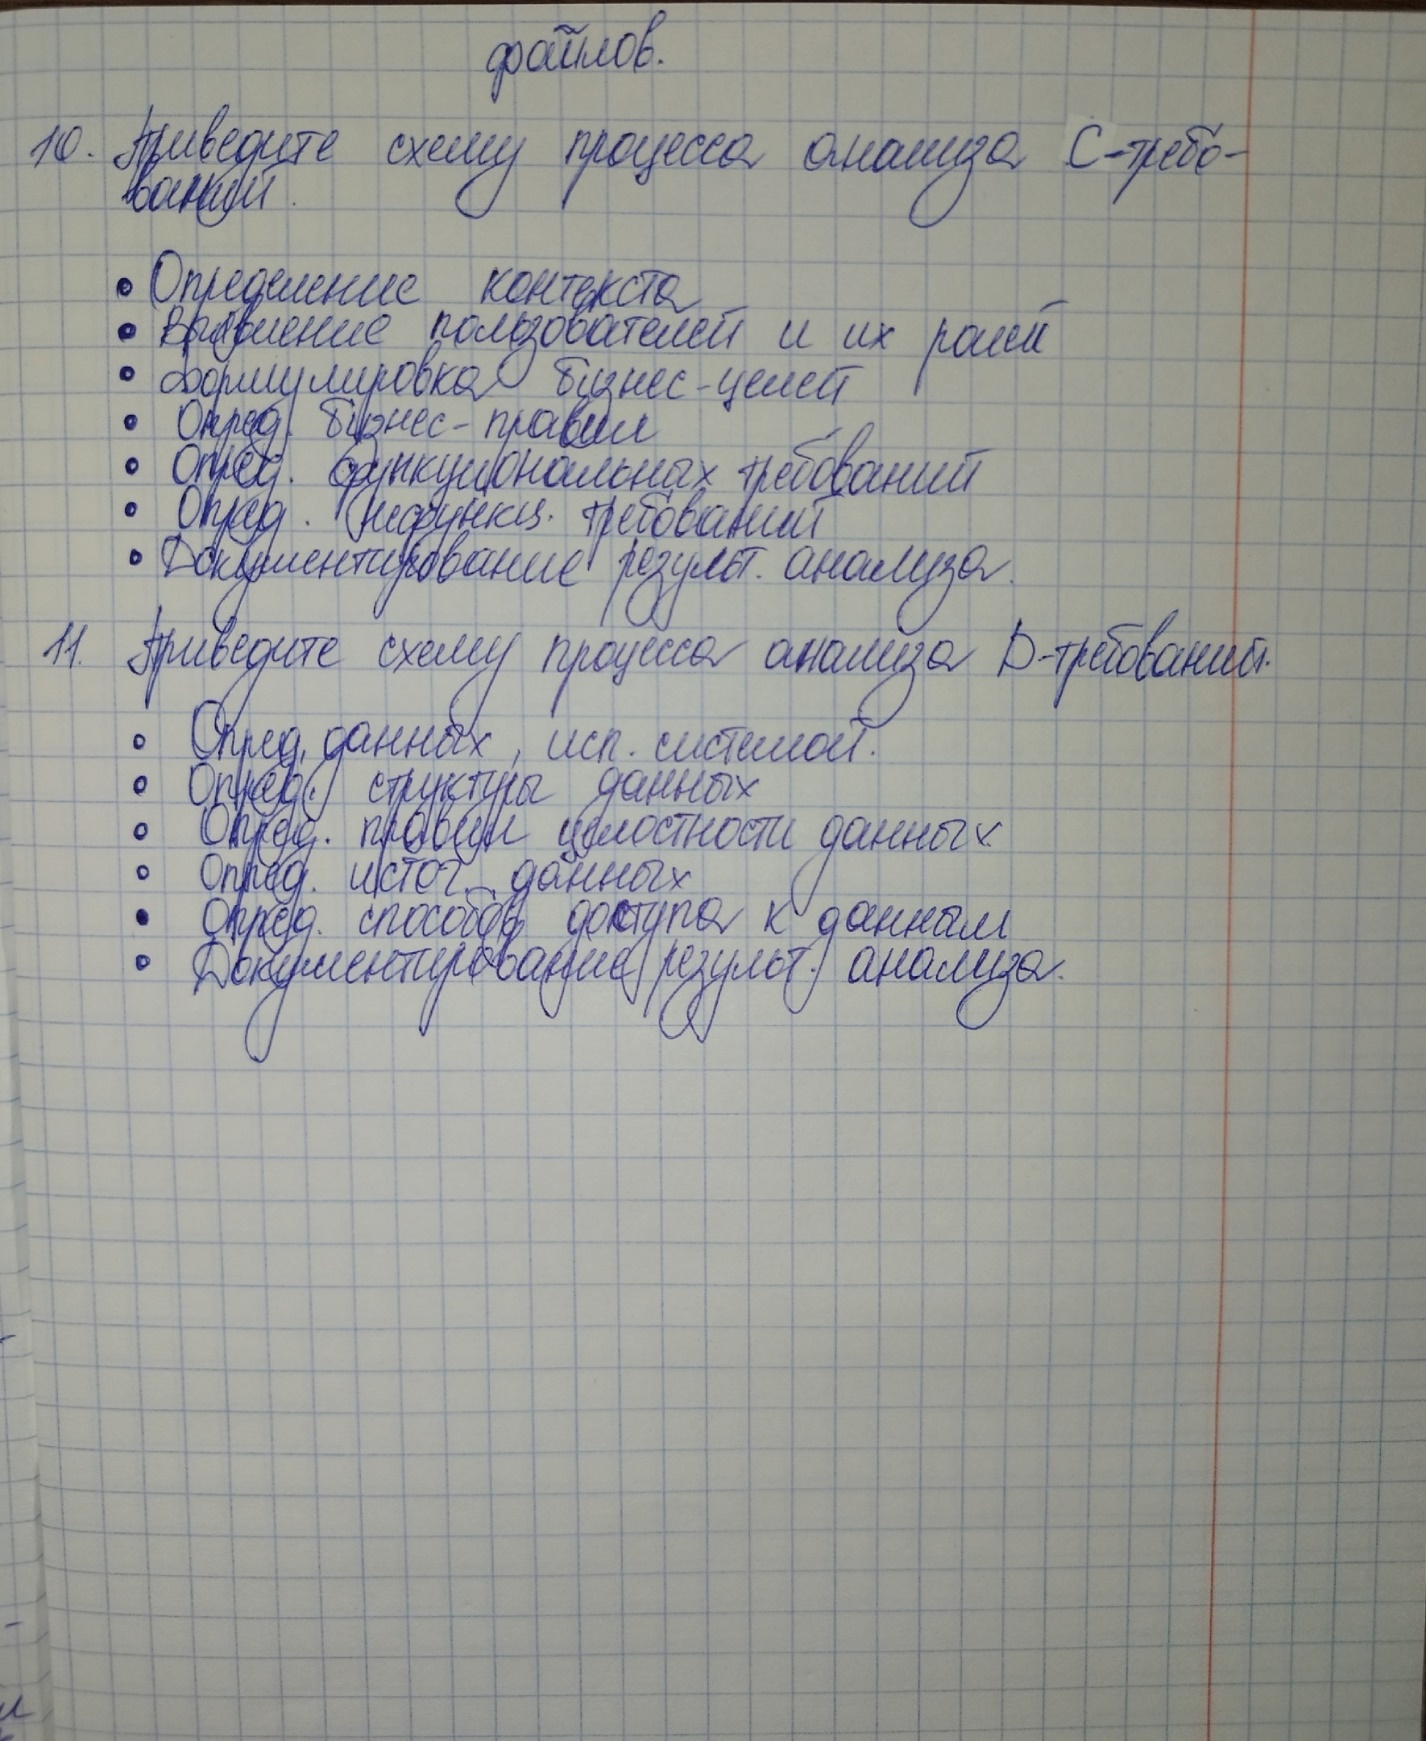 файлов.
10. Приведите схему процесса анализа С-требо-
ваний.
• Определение контекста
• Выявление пользователей и их ролей
• Формулировка бизнес-целей
• Опред. бизнес-правил
• Опред. функциональных требований
• Опред. нефункц. требований
• Документирование результ. анализа.
11. Приведите схему процесса анализа D-требований.
• Опред. данных, исп. системой.
• Опред. структуры данных
• Опред. правил целостности данных
• Опред. источ. данных
• Опред. способов доступа к данным
• Документирование результ. анализа.